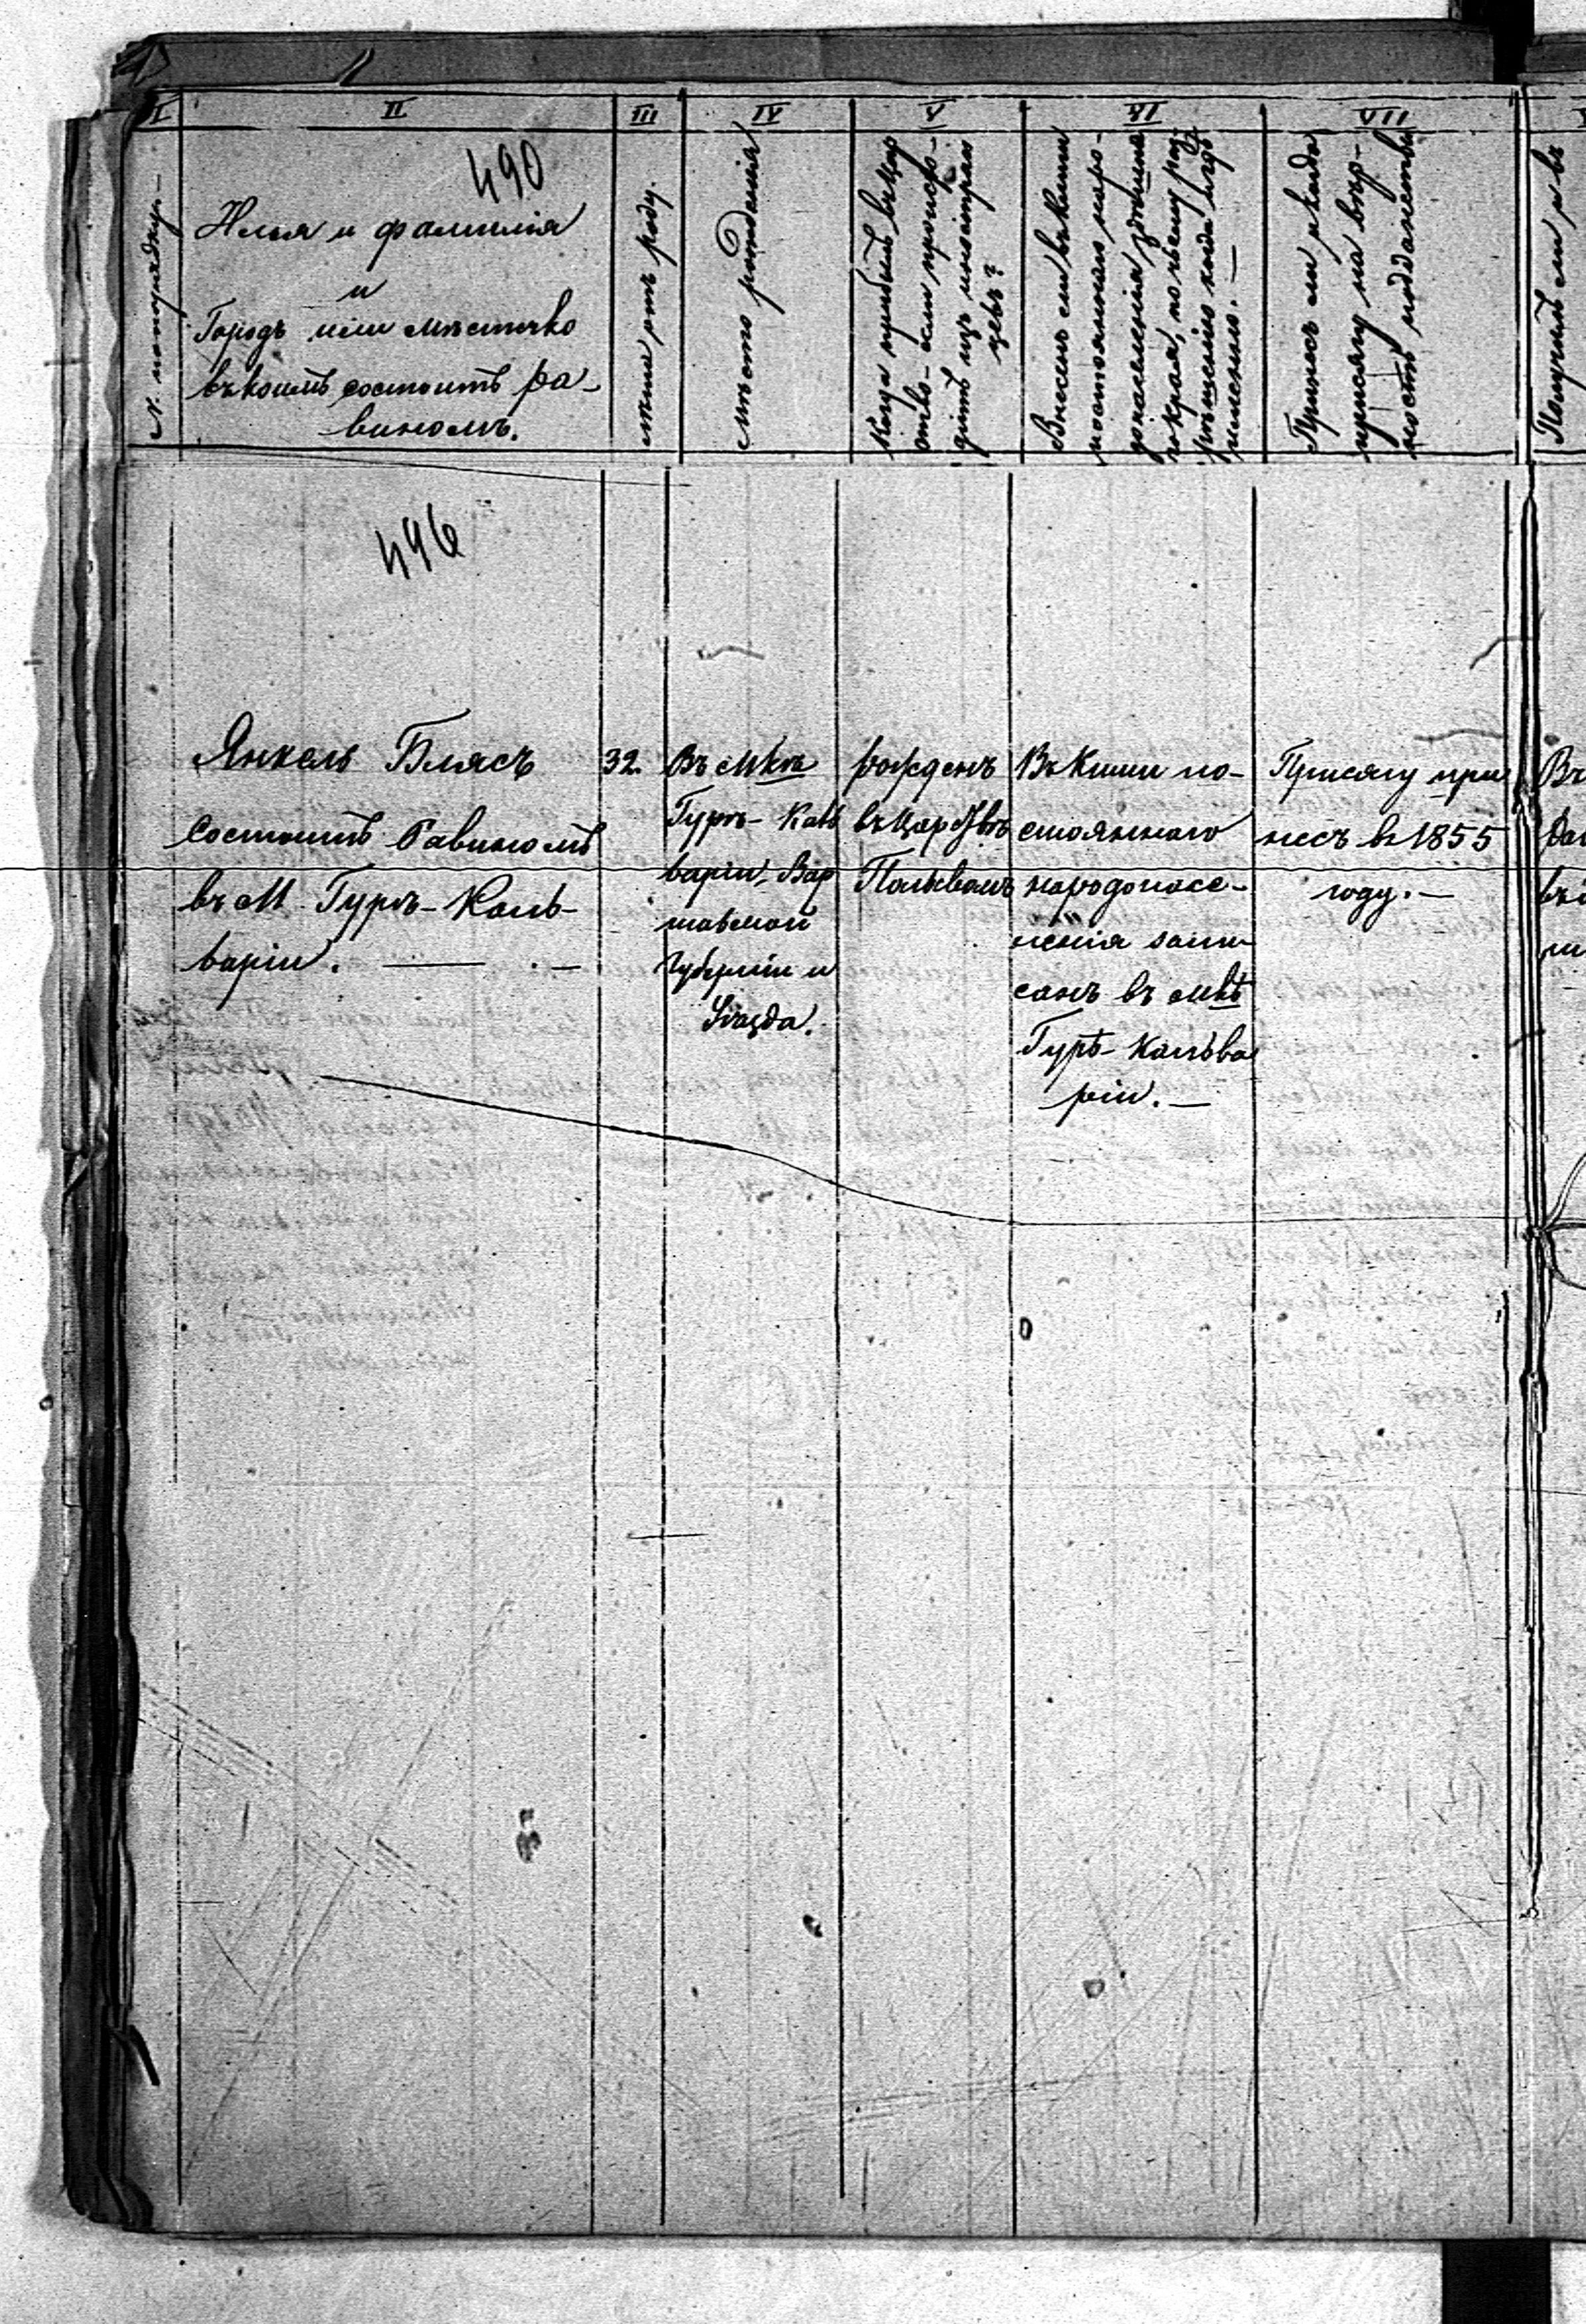 I II III IV V VI VII
490
№ по порядку.—
Имя и фамилія
и
Городъ или мѣстечко
въ коемъ состоитъ ра-
виномъ.
отъ роду.
Мѣсто рожденія
Когда прибылъ въ Цар
ство- или происхо-
дитъ изъ иностран
цевъ?
Внесенъ ли въ книги
постояннаго наро-
донаселенія здѣшня
го края, по чьему раз
рѣшенію когда и гдѣ
именно.—
Принесъ ли и когда
присягу на вѣр-
ность подданства
Получилъ ли и въ
496
Янкель Блясъ
состоитъ Равиномъ
въ М. Гурѣ-Каль-
варіи. — . —
32.
Въ Мкѣ
Гурѣ-Каль
варіи, Вар
шавской
Губерніи и
Уѣзда.
рожденъ
въ Царствѣ
Польскомъ
Въ Книги по-
стояннаго
народонасе-
ленія запи-
санъ въ мкѣ
Гурѣ-Кальва
ріи.—
Присягу при
несъ въ 1855
году.—
Въ